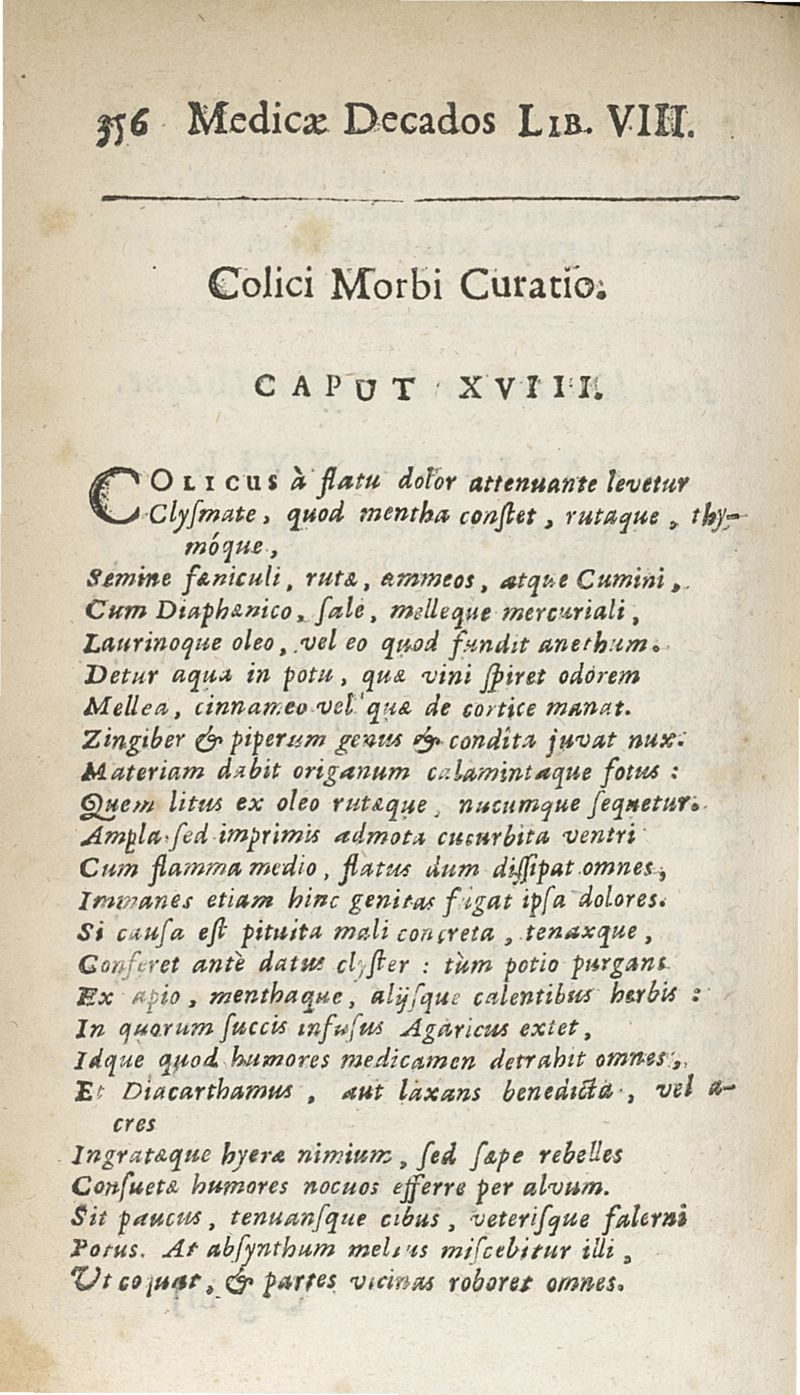 356 Medicæ Decados LIB. VIII.
Colici Morbi Curatio.
CAPUT XVIII.
COLICUS à flatu dolor attenuante levetur
Clysmate, quod mentha constet, rutaque, thy-
móque,
Semine fæniculi, rutæ, ammeos, atque Cumini,
Cum Diaphænico, sale, melleque mercuriali,
Laurinoque oleo, vel eo quod fundit anethum.
Detur aqua in potu, quæ vini spiret odorem
Mellea, cinnameo vel quæ de cortice manat.
Zingiber & piperum genus & condîta juvat nux.
Materiam dabit origanum calamintaque fotus :
Quem litus ex oleo rutæque, nucumque sequetur.
Ampla sed imprimis admota cucurbita ventri
Cum flamma medio, flatus dum dissipat omnes,
Immanes etiam hinc genitas fugat ipsa dolores.
Si causa est pituita mali concreta, tenaxque,
Conferet antè datus clyster : tùm potio purgans
Ex apio, menthaque, alijsque calentibus herbis :
In quorum succis infusus Agaricus extet,
Idque quod humores medicamen detrahit omnes,
Et Diacarthamus, aut laxans benedicta, vel a-
cres
Ingratæque hyeræ nimium, sed sæpe rebelles
Consuetæ humores nocuos efferre per alvum.
Sit paucus, tenuansque cibus, veterisque falerni
Potus. At absynthum melius miscebitur illi,
Ut coquat, & partes vicinas roboret omnes.